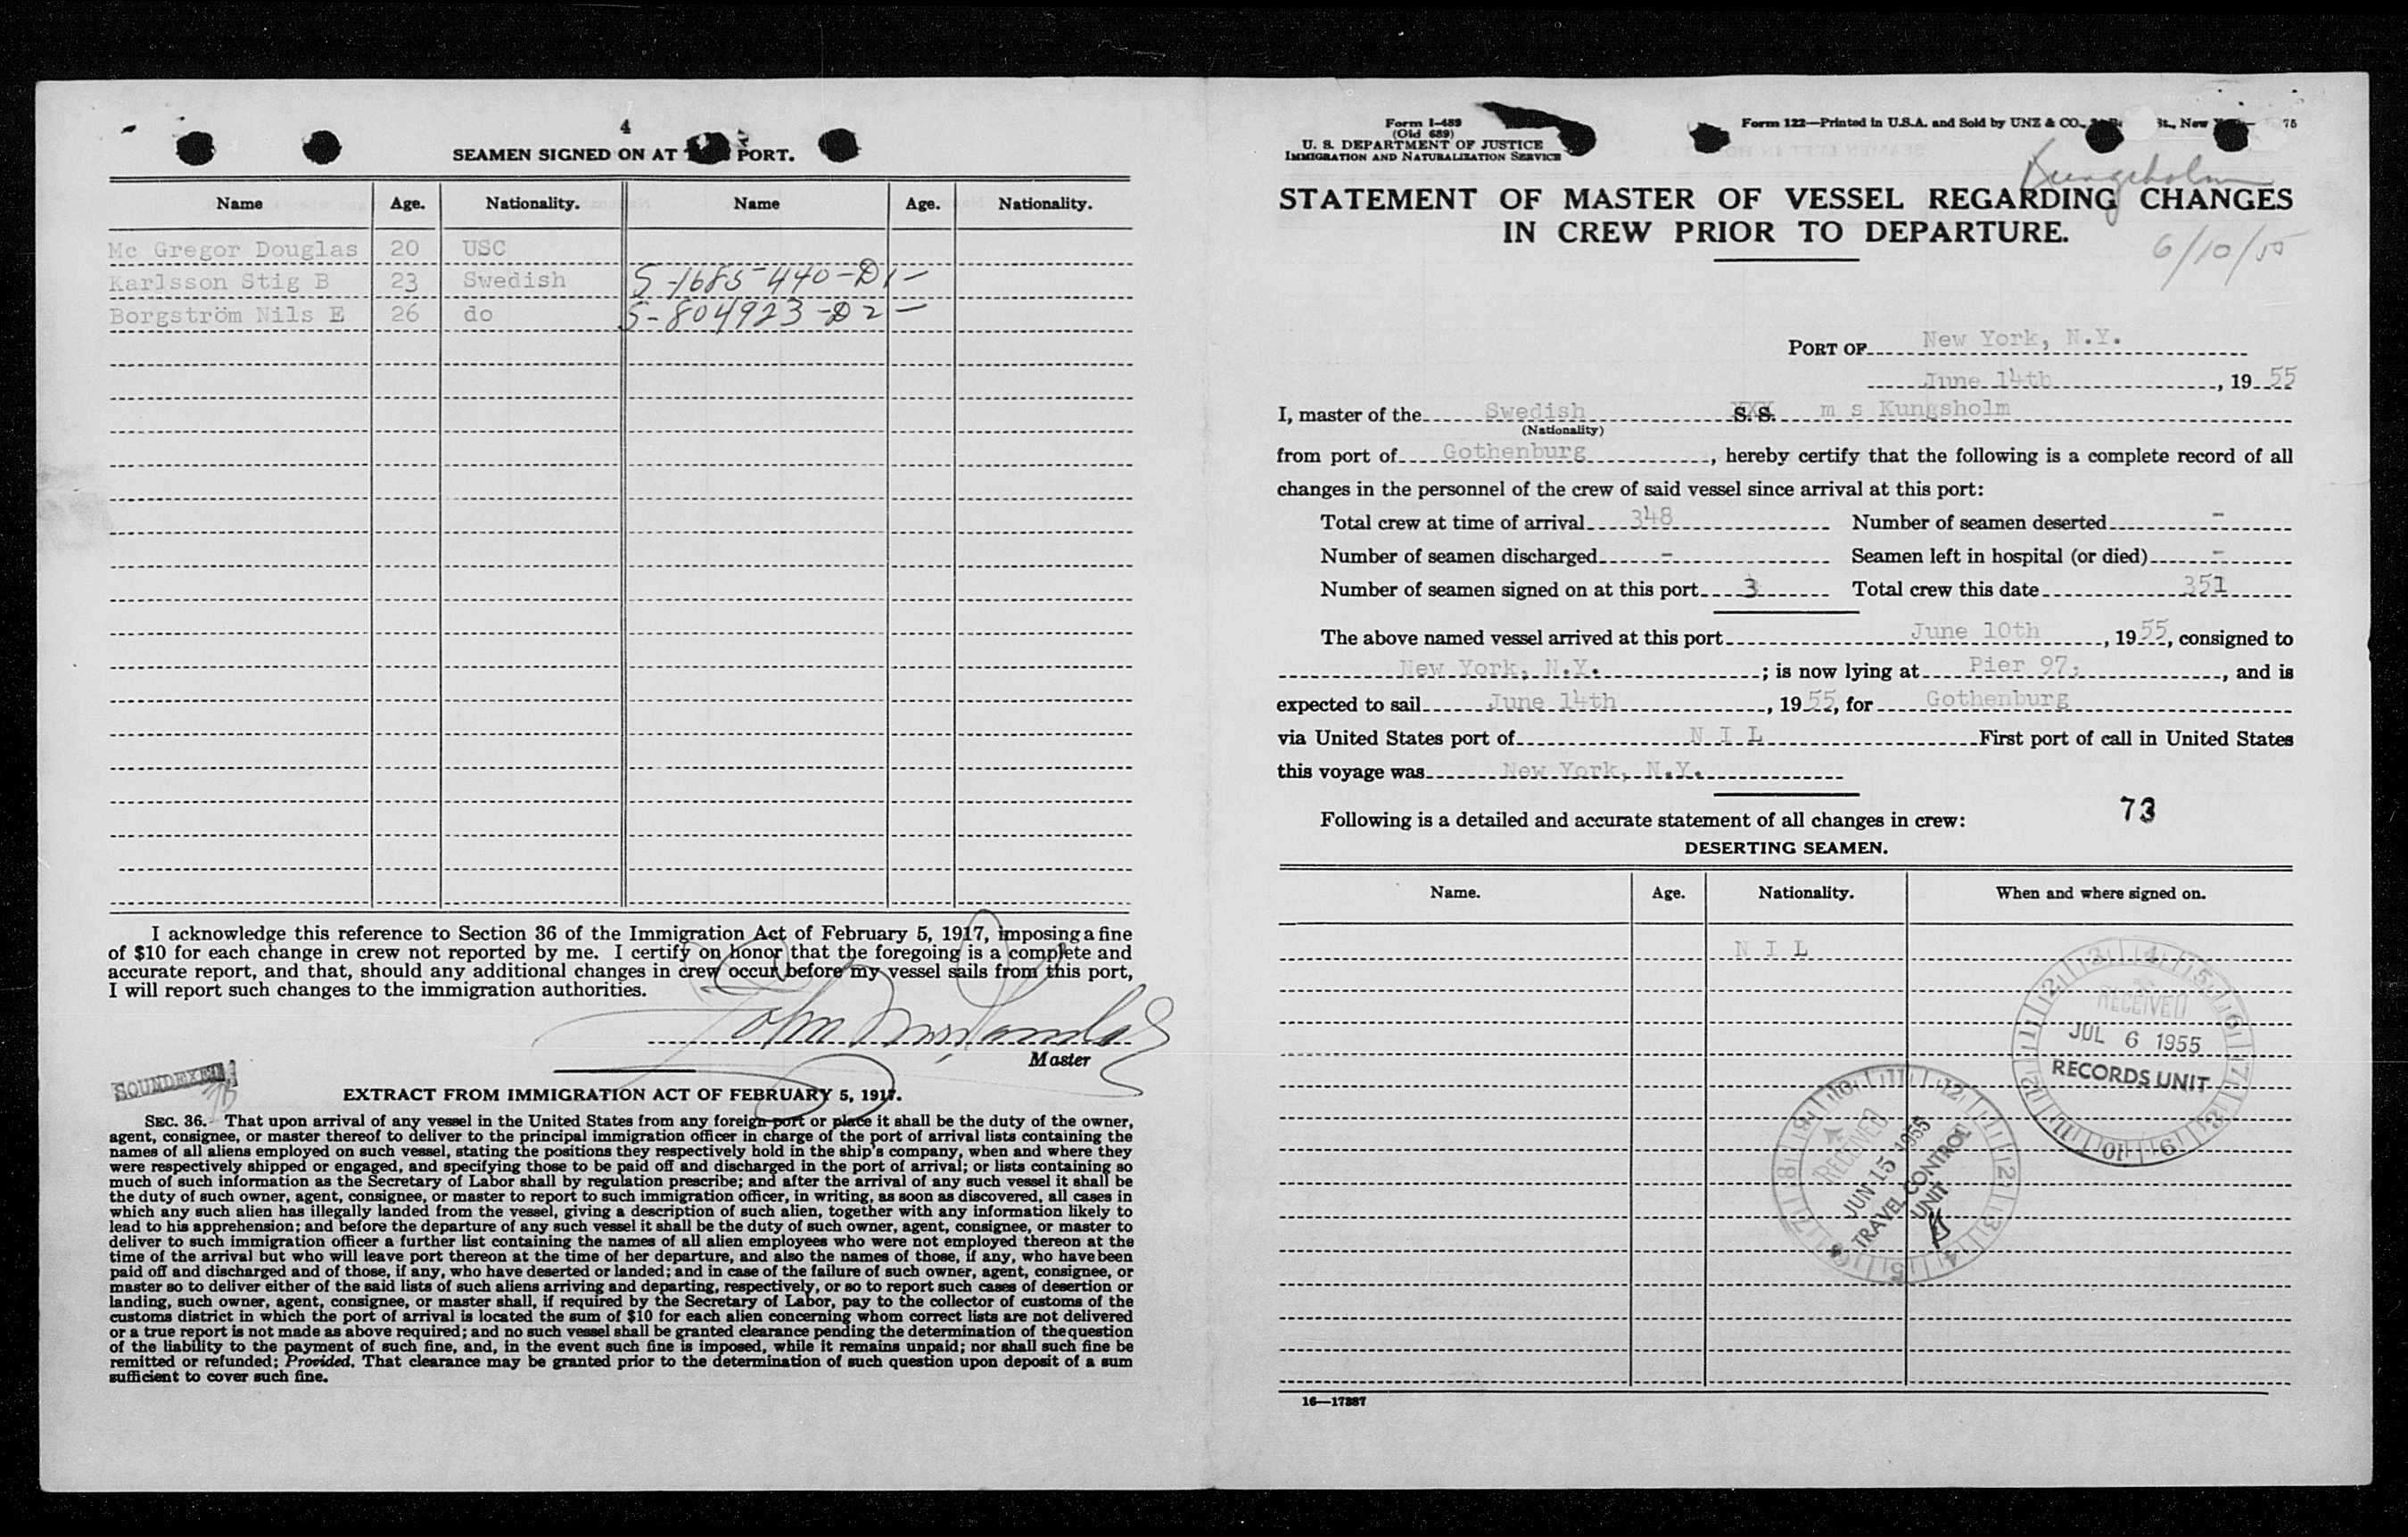 4
SEAMEN SIGNED ON AT PORT.
Name Age. Nationality. Name Age. Nationality.
Mc Gregor Douglas 20 USC
Karlsson Stig B 23 Swedish S-1685-440-D1-
Borgström Nils E 26 do S-804923-D2-
I acknowledge this reference to Section 36 of the Immigration Act of February 5, 1917, imposing a fine
of $10 for each change in crew not reported by me. I certify on honor that the foregoing is a complete and
accurate report, and that, should any additional changes in crew occur before my vessel sails from this port,
I will report such changes to the immigration authorities.
John
Master
SOUNDEXED
EXTRACT FROM IMMIGRATION ACT OF FEBRUARY 5, 1917.
SEC. 36. That upon arrival of any vessel in the United States from any foreign port or place it shall be the duty of the owner,
agent, consignee, or master thereof to deliver to the principal immigration officer in charge of the port of arrival lists containing the
names of all aliens employed on such vessel, stating the positions they respectively hold in the ship's company, when and where they
were respectively shipped or engaged, and specifying those to be paid off and discharged in the port of arrival; or lists containing so
much of such information as the Secretary of Labor shall by regulation prescribe; and after the arrival of any such vessel it shall be
the duty of such owner, agent, consignee, or master to report to such immigration officer, in writing, as soon as discovered, all cases in
which any such alien has illegally landed from the vessel, giving a description of such alien, together with any information likely to
lead to his apprehension; and before the departure of any such vessel it shall be the duty of such owner, agent, consignee, or master to
deliver to such immigration officer a further list containing the names of all alien employees who were not employed thereon at the
time of the arrival but who will leave port thereon at the time of her departure, and also the names of those, if any, who have been
paid off and discharged and of those, if any, who have deserted or landed; and in case of the failure of such owner, agent, consignee, or
master so to deliver either of the said lists of such aliens arriving and departing, respectively, or so to report such cases of desertion or
landing, such owner, agent, consignee, or master shall, if required by the Secretary of Labor, pay to the collector of customs of the
customs district in which the port of arrival is located the sum of $10 for each alien concerning whom correct lists are not delivered
or a true report is not made as above required; and no such vessel shall be granted clearance pending the determination of the question
of the liability to the payment of such fine, and, in the event such fine is imposed, while it remains unpaid; nor shall such fine be
remitted or refunded; Provided, That clearance may be granted prior to the determination of such question upon deposit of a sum
sufficient to cover such fine.
Form I-489
(Old 689)
U. S. DEPARTMENT OF JUSTICE
IMMIGRATION AND NATURALIZATION SERVICE
Form 122—Printed in U.S.A. and Sold by UNZ & CO., St., New 75
Kungsholm
STATEMENT OF MASTER OF VESSEL REGARDING CHANGES
IN CREW PRIOR TO DEPARTURE.
6/10/55
PORT OF New York, N.Y.
June 14th, 1955
I, master of the Swedish S.S. m s Kungsholm
(Nationality)
from port of Gothenburg, hereby certify that the following is a complete record of all
changes in the personnel of the crew of said vessel since arrival at this port:
Total crew at time of arrival 348 Number of seamen deserted -
Number of seamen discharged - Seamen left in hospital (or died) -
Number of seamen signed on at this port 3 Total crew this date 351
The above named vessel arrived at this port June 10th, 1955, consigned to
New York, N.Y.; is now lying at Pier 97, and is
expected to sail June 14th, 1955, for Gothenburg
via United States port of N I L First port of call in United States
this voyage was New York, N.Y.
73
Following is a detailed and accurate statement of all changes in crew:
DESERTING SEAMEN.
Name. Age. Nationality. When and where signed on.
N I L
RECEIVED
JUL 6 1955
RECORDS UNIT
RECEIVED
JUN 15 1955
TRAVEL CONTROL
UNIT
16—17387